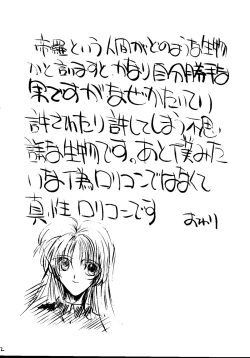 帝羅という人間がどのような生物
かと言うますと、かなり自分勝手な
男ですがなぜかたいてい
許されたり許してしまう不思
議な生物です。あと僕みた
いな偽ロリコンではなくて
真性ロリコンです
おわり
2